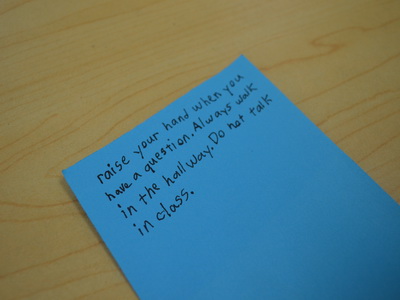 raise your hand when you
have a question. Always walk
in the hallway. Do not talk
in class.